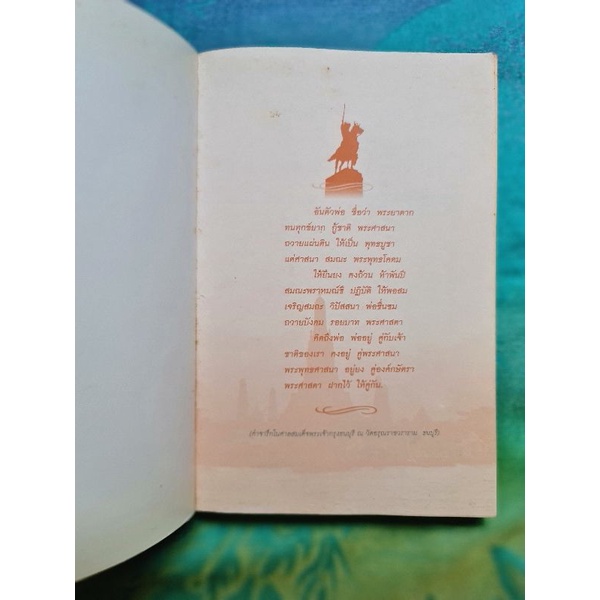 อันตัวพ่อ ชื่อว่า พระยาตาก
ทนทุกข์ยาก กู้ชาติ พระศาสนา
ถวายแผ่นดิน ให้เป็น พุทธบูชา
แด่ศาสนา สมณะ พระพุทธโคดม
ให้ยืนยง คงถ้วน ห้าพันปี
สมณะพราหมณ์ชี ปฏิบัติ ให้พอสม
เจริญสมถะ วิปัสสนา พ่อชื่นชม
ถวายบังคม รอยบาท พระศาสดา
คิดถึงพ่อ พ่ออยู่ คู่กับเจ้า
ชาติของเรา คงอยู่ คู่พระศาสนา
พระพุทธศาสนา อยู่ยง คู่องค์กษัตรา
พระศาสดา ฝากไว้ ให้คู่กัน.
(คำจารึกในศาลสมเด็จพระเจ้ากรุงธนบุรี ณ วัดอรุณราชวราราม ธนบุรี)